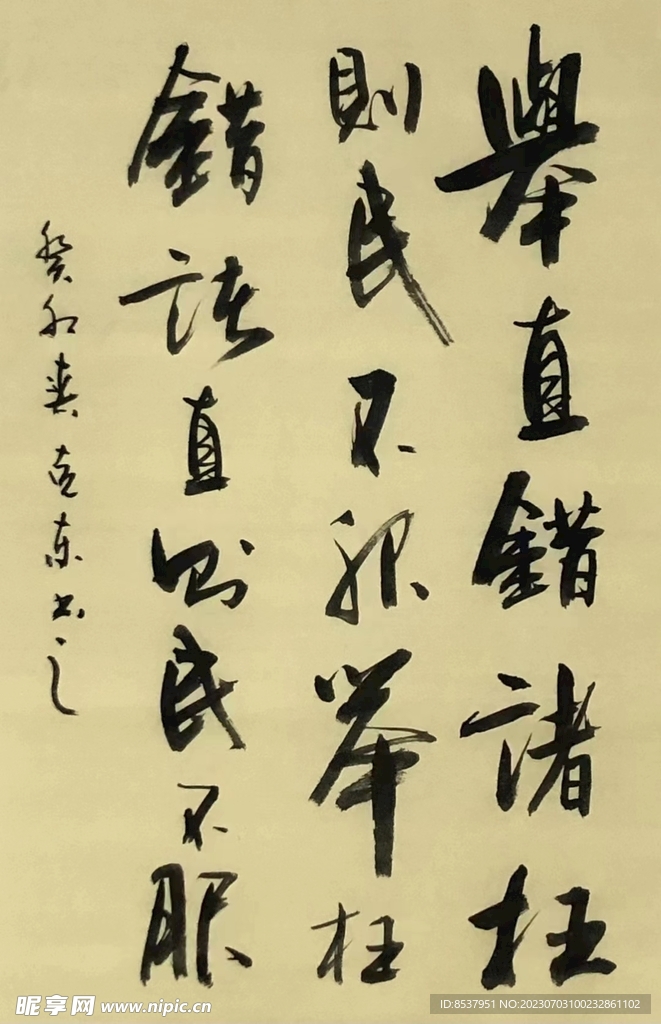 舉直錯諸枉
則民不服举枉
錯諸直則民不服
癸卯克东书之
昵享网 www.nipic.cn
ID:8537951 NO:20230703100232861102